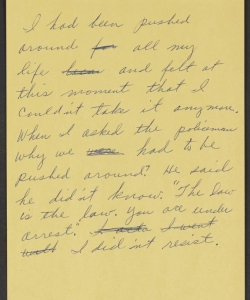 I had been pushed
around for all my
life and felt at
this moment that I
couldn't take it anymore.
When I asked the policeman
why we had to be
pushed around? He said
he didn't know. "The law
is the law. You are under
arrest."
I didn't resist.